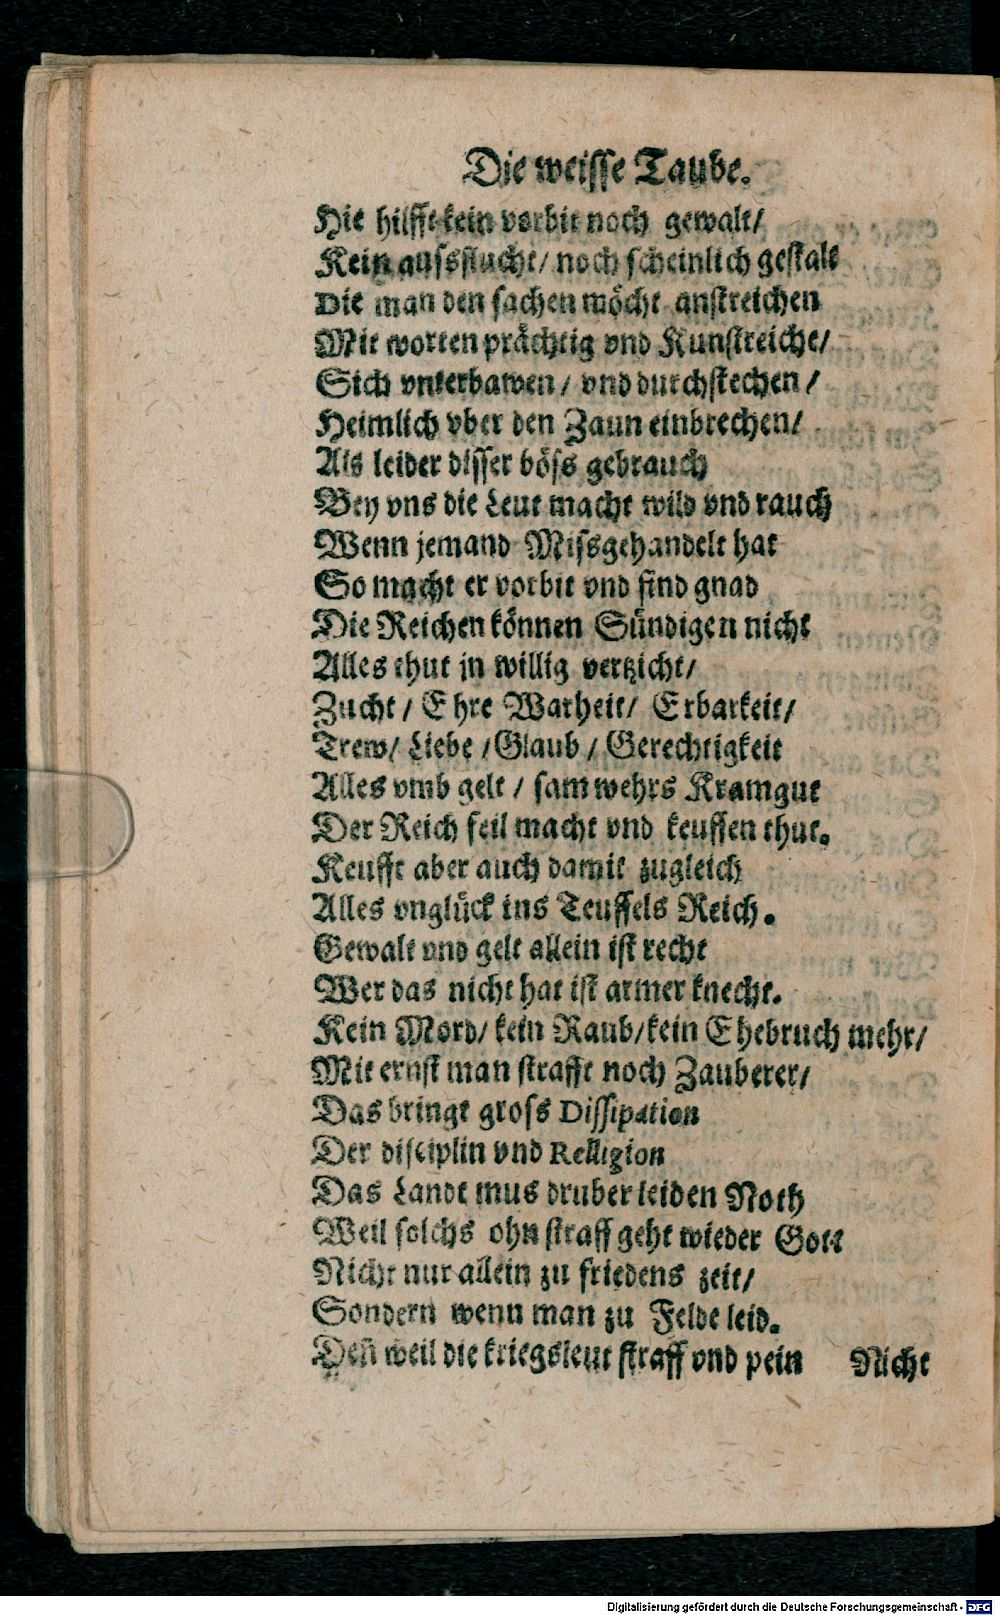 Die weisse Taube.
Hie hilfft kein vorbit noch gewalt/
Kein aufsflucht/ noch scheinlich gestalt
Die man den sachen möcht anstreichen
Mit worten prächtig vnd Kunstreiche/
Sich vnterbawen/ vnd durchstechen/
Heimlich vber den Zaun einbrechen/
Als leider disser böss gebrauch
Bey vns die Leut macht wild vnd rauch
Wenn jemand Missgehandelt hat
So macht er vorbit vnd find gnad
Die Reichen können Sündigen nicht
Alles thut jn willig vertzicht/
Zucht/ Ehre Warheit/ Erbarkeit/
Trew/ Liebe/ Glaub/ Gerechtigkeit
Alles vmb gelt/ sam wehrs Kramgut
Der Reich feil macht vnd keuffen thut.
Keufft aber auch damit zugleich
Alles vnglück ins Teuffels Reich.
Gewalt vnd gelt allein ist recht
Wer das nicht hat ist armer knecht.
Kein Mord/ kein Raub/ kein Ehebruch mehr/
Mit ernst man strafft noch Zauberer/
Das bringt gross Dissipation
Der disciplin vnd Relligion
Das Landt mus druber leiden Noth
Weil solchs ohn straff geht wieder Gott
Nicht nur allein zu friedens zeit/
Sondern wenn man zu Felde leid.
Deñ weil die kriegsleut straff vnd pein
Nicht
Digitalisierung gefördert durch die Deutsche Forschungsgemeinschaft - DFG